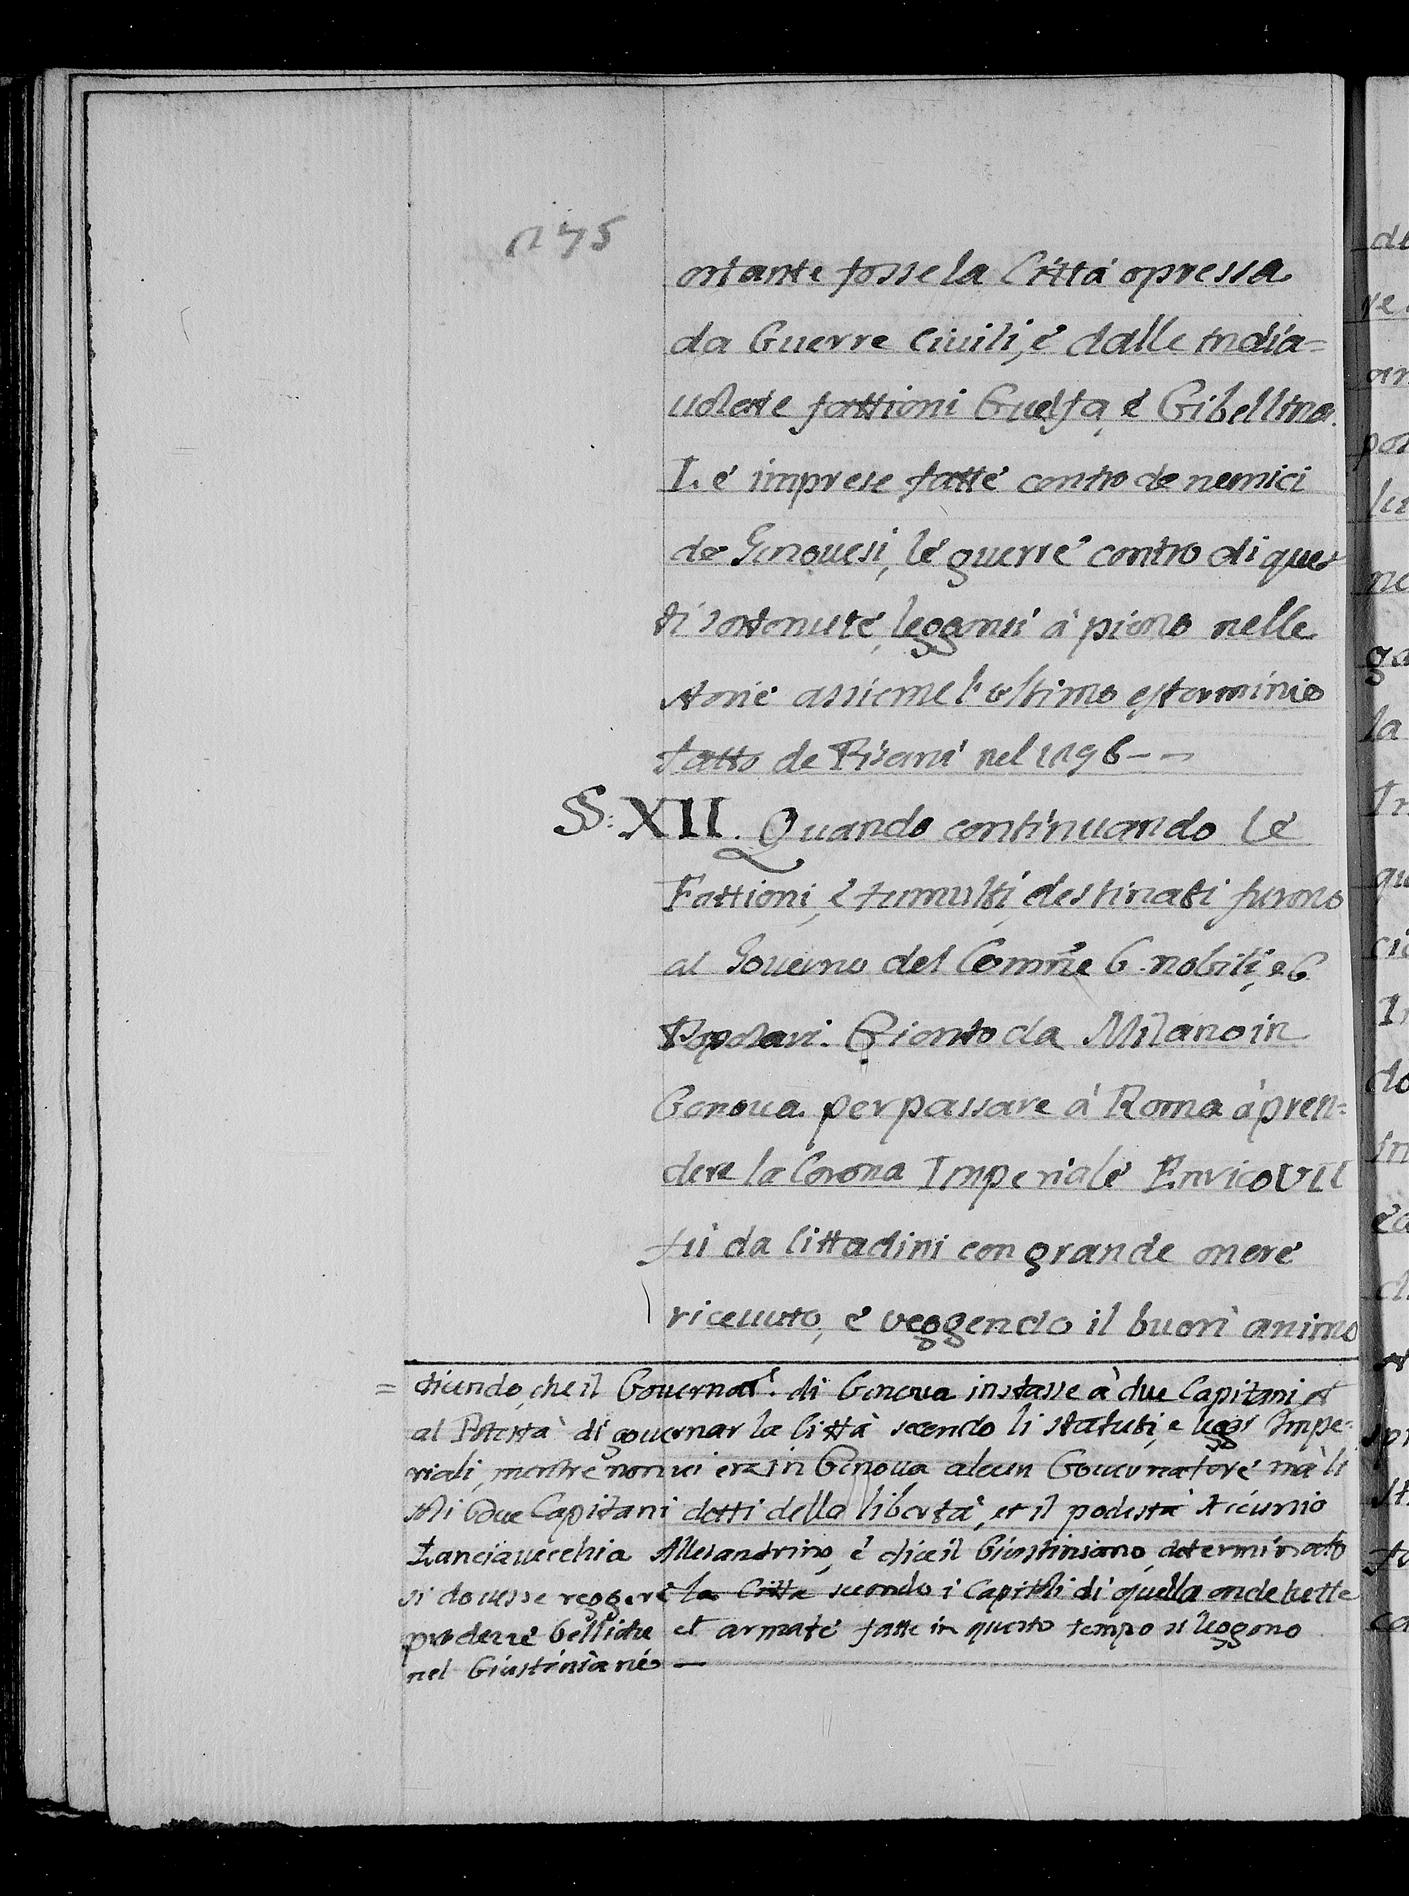 1275
ostante fosse la Città opressa
da Guerre Ciuili, è dalle india=
uolate fattioni Guelfa, è Gibellina.
Le imprese fatte contro de nemici
de Genouesi, le guerre contro di ques
ti sostenute, leggansi à pieno nelle
storie assieme l'ultimo esterminio
fatto de Pisani nel 1296 —
§§: XII. Quando continuando le
Fattioni, è tumulti, destinati furono
al Gouerno del Comñe 6 nobili, e 6
Popolari. Gionto da Milano in
Genoua per passare à Roma à pren=
dere la Corona Imperiale Enrico VII
fù da Cittadini con grande onore
riceuuto, è veggendo il buon animo
= dicendo, che il Gouernat.e di Genoua instasse à due Capitani et
al Potestà di gouernar la Città secondo li statuti, e leggi Impe=
riali, mentre non ui era in Genoua alcun Gouernatore mà li
soli due Capitani detti della libertà, et il podestà
Lanciauecchia Allesandrino, è dice il Giustiniano, determinato
si douesse reggere la Città secondo i Capitoli di quella onde tutte
prodezze belliche et armate fatte in questo tempo si leggono
nel Giustiniano —
di
re
an
por
lu
ne
ga
la
In
qu
cio
In
do
in
ca